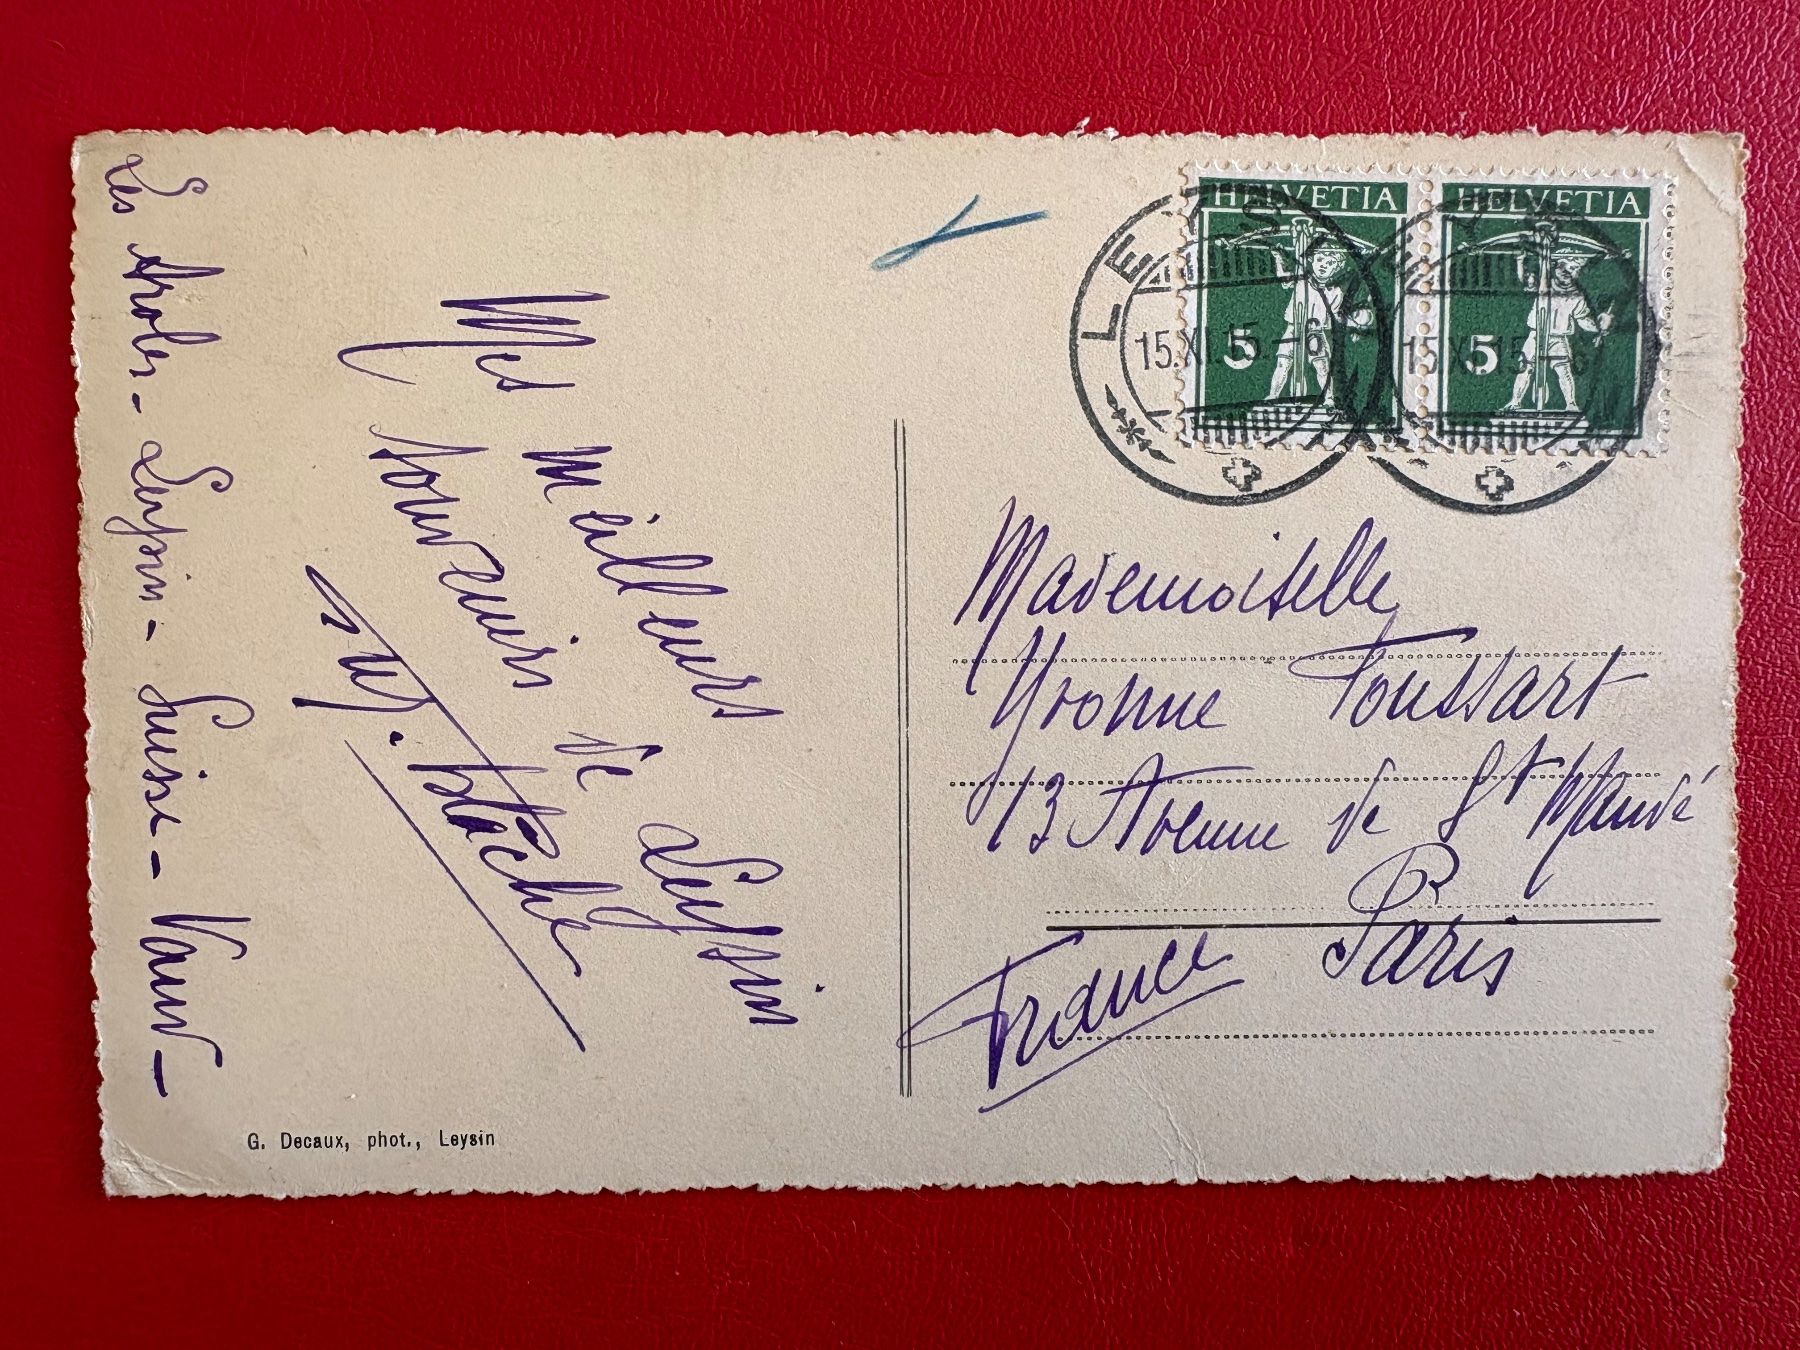 Les Aroles - Leysin - Suisse - Vaud -
Mes meilleurs
souvenirs de Leysin
HELVETIA HELVETIA
5 5
LEYSIN
15.XI.15.-6
15.XI.15.-6
Mademoiselle
Yvonne Toussart
13 Avenue de St Mandé
Paris
France
G. Decaux, phot., Leysin